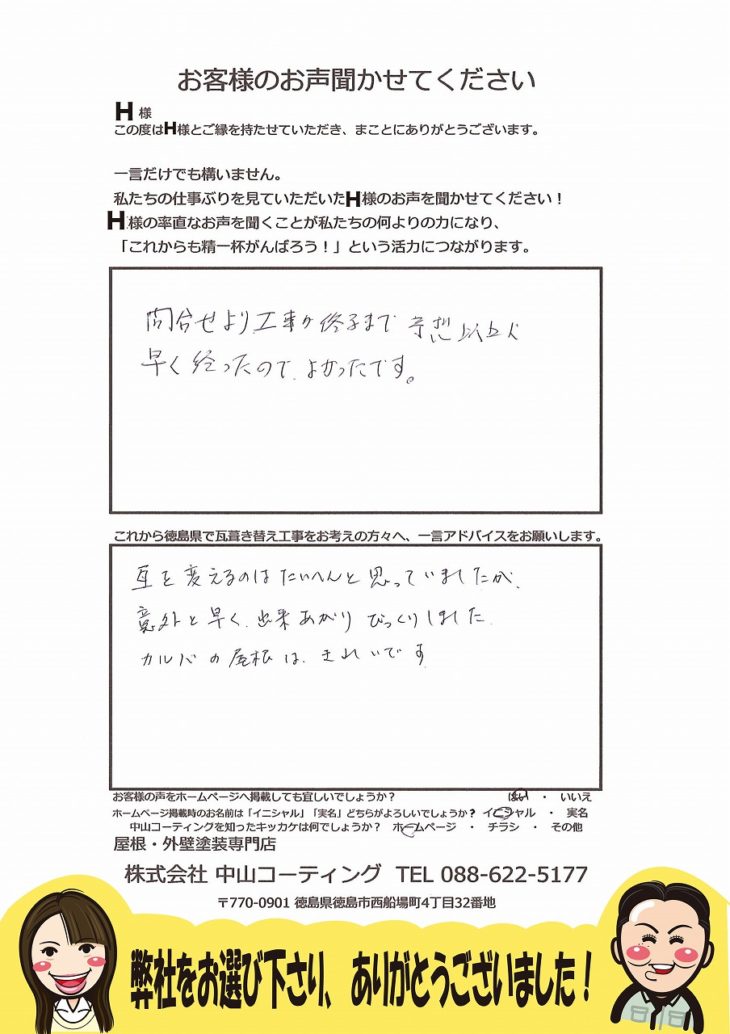 お客様のお声聞かせてください
H 様
この度はH様とご縁を持たせていただき、まことにありがとうございます。
一言だけでも構いません。
私たちの仕事ぶりを見ていただいたH様のお声を聞かせてください！
H様の率直なお声を聞くことが私たちの何よりの力になり、
「これからも精一杯がんばろう！」という活力につながります。
問合せより工事が終了まで 予想以上に
早く終ったので、よかったです。
これから徳島県で瓦葺き替え工事をお考えの方々へ、一言アドバイスをお願いします。
瓦を変えるのはたいへんと思っていましたが、
意外と早く、出来あがりびっくりしました。
カルバの屋根は、きれいです
お客様の声をホームページへ掲載しても宜しいでしょうか？ はい ・ いいえ
ホームページ掲載時のお名前は「イニシャル」「実名」どちらがよろしいでしょうか？ イニシャル ・ 実名
中山コーティングを知ったキッカケは何でしょうか？ ホームページ ・ チラシ ・ その他
屋根・外壁塗装専門店
株式会社 中山コーティング TEL 088-622-5177
〒770-0901 徳島県徳島市西船場町4丁目32番地
弊社をお選び下さり、ありがとうございました！